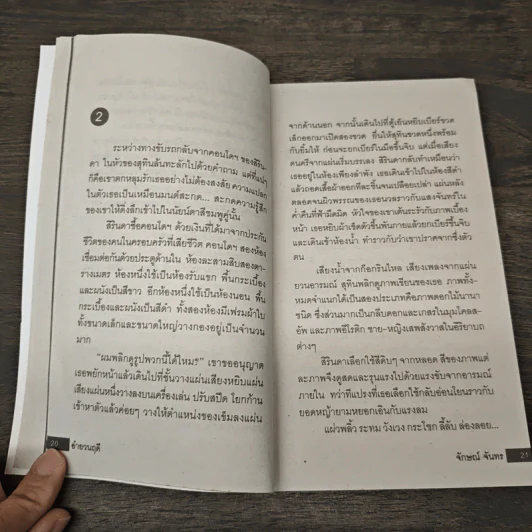 2
ระหว่างทางขับรถกลับจากคอนโดฯ ของสิริน-
ดา ในหัวของสุทินล้นทะลักไปด้วยคำถาม แต่ที่แน่ๆ
ก็คือเขาตกหลุมรักเธออย่างไม่ต้องสงสัย ความแปลก
ในตัวเธอเป็นเหมือนมนต์สะกด... สะกดความรู้สึก
ของเขาให้ดิ่งลึกเข้าไปในนัยน์ตาสีชมพูคู่นั้น
สิรินดาซื้อคอนโดฯ ด้วยเงินที่ได้มาจากประกัน
ชีวิตของคนในครอบครัวที่เสียชีวิต คอนโดฯ สองห้อง
เชื่อมต่อกันด้วยประตูด้านใน ห้องละสามสิบสองตา-
รางเมตร ห้องหนึ่งใช้เป็นห้องรับแขก พื้นกระเบื้อง
และผนังเป็นสีขาว อีกห้องหนึ่งใช้เป็นห้องนอน พื้น
กระเบื้องและผนังเป็นสีดำ ทั้งสองห้องมีเฟรมผ้าใบ
ทั้งขนาดเล็กและขนาดใหญ่วางกองอยู่เป็นจำนวน
มาก
“ผมพลิกดูรูปพวกนี้ได้ไหมร” เขาขออนุญาต
เธอพยักหน้าแล้วเดินไปที่ชั้นวางแผ่นเสียงหยิบแผ่น
เสียงแผ่นหนึ่งวางลงบนเครื่องเล่น ปรับสปีด โยกก้าน
เข้าหาตัวแล้วค่อยๆ วางให้ตำแหน่งของเข็มลงแผ่น
20 อำยวนฤดี
จากด้านนอก จากนั้นเดินไปที่ตู้เย็นหยิบเบียร์ขวด
เล็กออกมาเปิดสองขวด ยื่นให้สุทินขวดหนึ่งพร้อม
กับยิ้มให้ ก่อนจะยกเบียร์ในมือขึ้นจิบ แต่เมื่อเสียง
ดนตรีจากแผ่นเริ่มบรรเลง สิรินดากลับทำเหมือนว่า
เธออยู่ในห้องเพียงลำพัง เธอเดินเข้าไปในห้องสีดำ
แล้วถอดเสื้อผ้าออกทีละชิ้นจนเปลือยเปล่า แผ่นหลัง
ตลอดจนผิวพรรณของเธอนวลราวกับแสงจันทร์ใน
ค่ำคืนที่ฟ้ามืดมิด หัวใจของเขาเต้นระรัวกับภาพเบื้อง
หน้า เธอหยิบผ้าเช็ดตัวขึ้นพันกายแล้วยกเบียร์ขึ้นจิบ
และเดินเข้าห้องน้ำ ทำราวกับว่าเขาปราศจากซึ่งตัว
ตน
เสียงน้ำจากก๊อกรินไหล เสียงเพลงจากแผ่น
ยวนอารมณ์ สุทินพลิกดูภาพเขียนของเธอ ภาพทั้ง-
หมดจำแนกได้เป็นสองประเภทคือภาพดอกไม้นานา
ชนิด ซึ่งส่วนมากเป็นกลีบดอกและเกสรในมุมโคลส-
อัพ และภาพอีโรติก ชาย-หญิงเสพสังวาสในอิริยาบถ
ต่างๆ
สิรินดาเลือกใช้สีดิบๆ จากหลอด สีของภาพแต่
ละภาพจึงดูสดและรุนแรงไปด้วยแรงขับจากอารมณ์
ภายใน ทว่าทีแปรงที่เธอเลือกใช้กลับอ่อนโยนราวกับ
ยอดหญ้ายามหยอกเอินกับแรงลม
แผ่วพลิ้ว ระทม วังเวง กระโชก ลี้ลับ ล่องลอย...
จักษณ์ จันทร 21